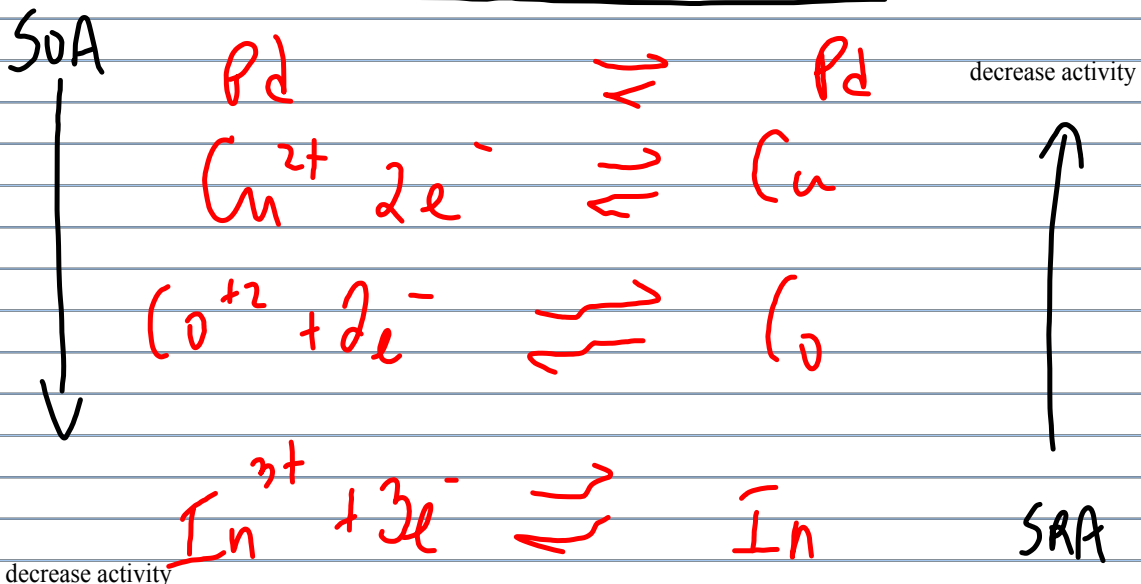 SOA
Pd ⇌ Pd
decrease activity
Cu²⁺ 2e⁻ ⇌ Cu
Co⁺² + 2e⁻ ⇌ Co
In³⁺ + 3e⁻ ⇌ In
SRA
decrease activity